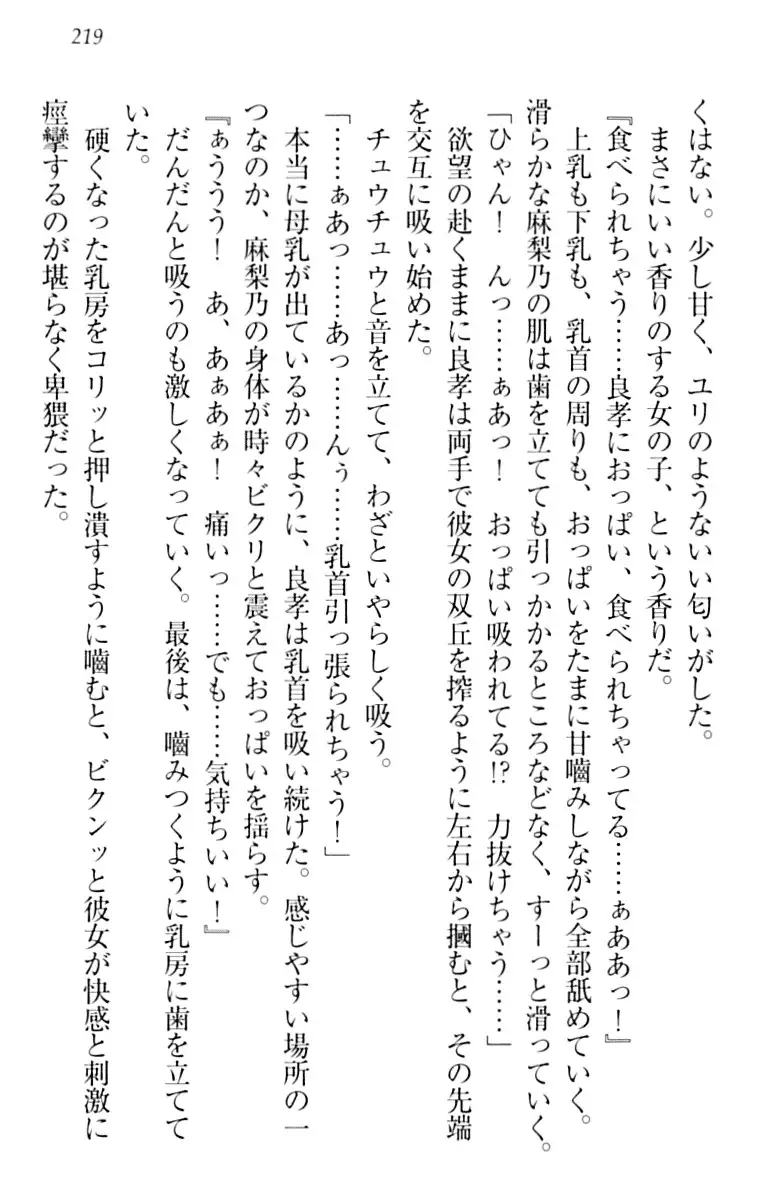 219
くはない。少し甘く、ユリのようないい匂いがした。
まさにいい香りのする女の子、という香りだ。
『食べられちゃう……良孝におっぱい、食べられちゃってる……ぁああっ！』
上乳も下乳も、乳首の周りも、おっぱいをたまに甘嚙みしながら全部舐めていく。
滑らかな麻梨乃の肌は歯を立てても引っかかるところなどなく、すーっと滑っていく。
「ひゃん！　んっ……ぁあっ！　おっぱい吸われてる!?　力抜けちゃう……」
欲望の赴くままに良孝は両手で彼女の双丘を搾るように左右から摑むと、その先端
を交互に吸い始めた。
チュウチュウと音を立てて、わざといやらしく吸う。
「……ぁあっ……あっ……んぅ……乳首引っ張られちゃう！」
本当に母乳が出ているかのように、良孝は乳首を吸い続けた。感じやすい場所の一
つなのか、麻梨乃の身体が時々ビクリと震えておっぱいを揺らす。
『ぁううう！　あ、あぁあぁ！　痛いっ……でも……気持ちいい！』
だんだんと吸うのも激しくなっていく。最後は、嚙みつくように乳房に歯を立てて
いた。
硬くなった乳房をコリッと押し潰すように嚙むと、ビクンッと彼女が快感と刺激に
痙攣するのが堪らなく卑猥だった。